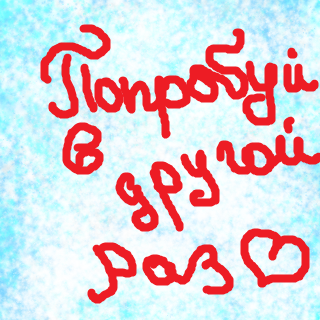 Попробуй
в
другой
раз